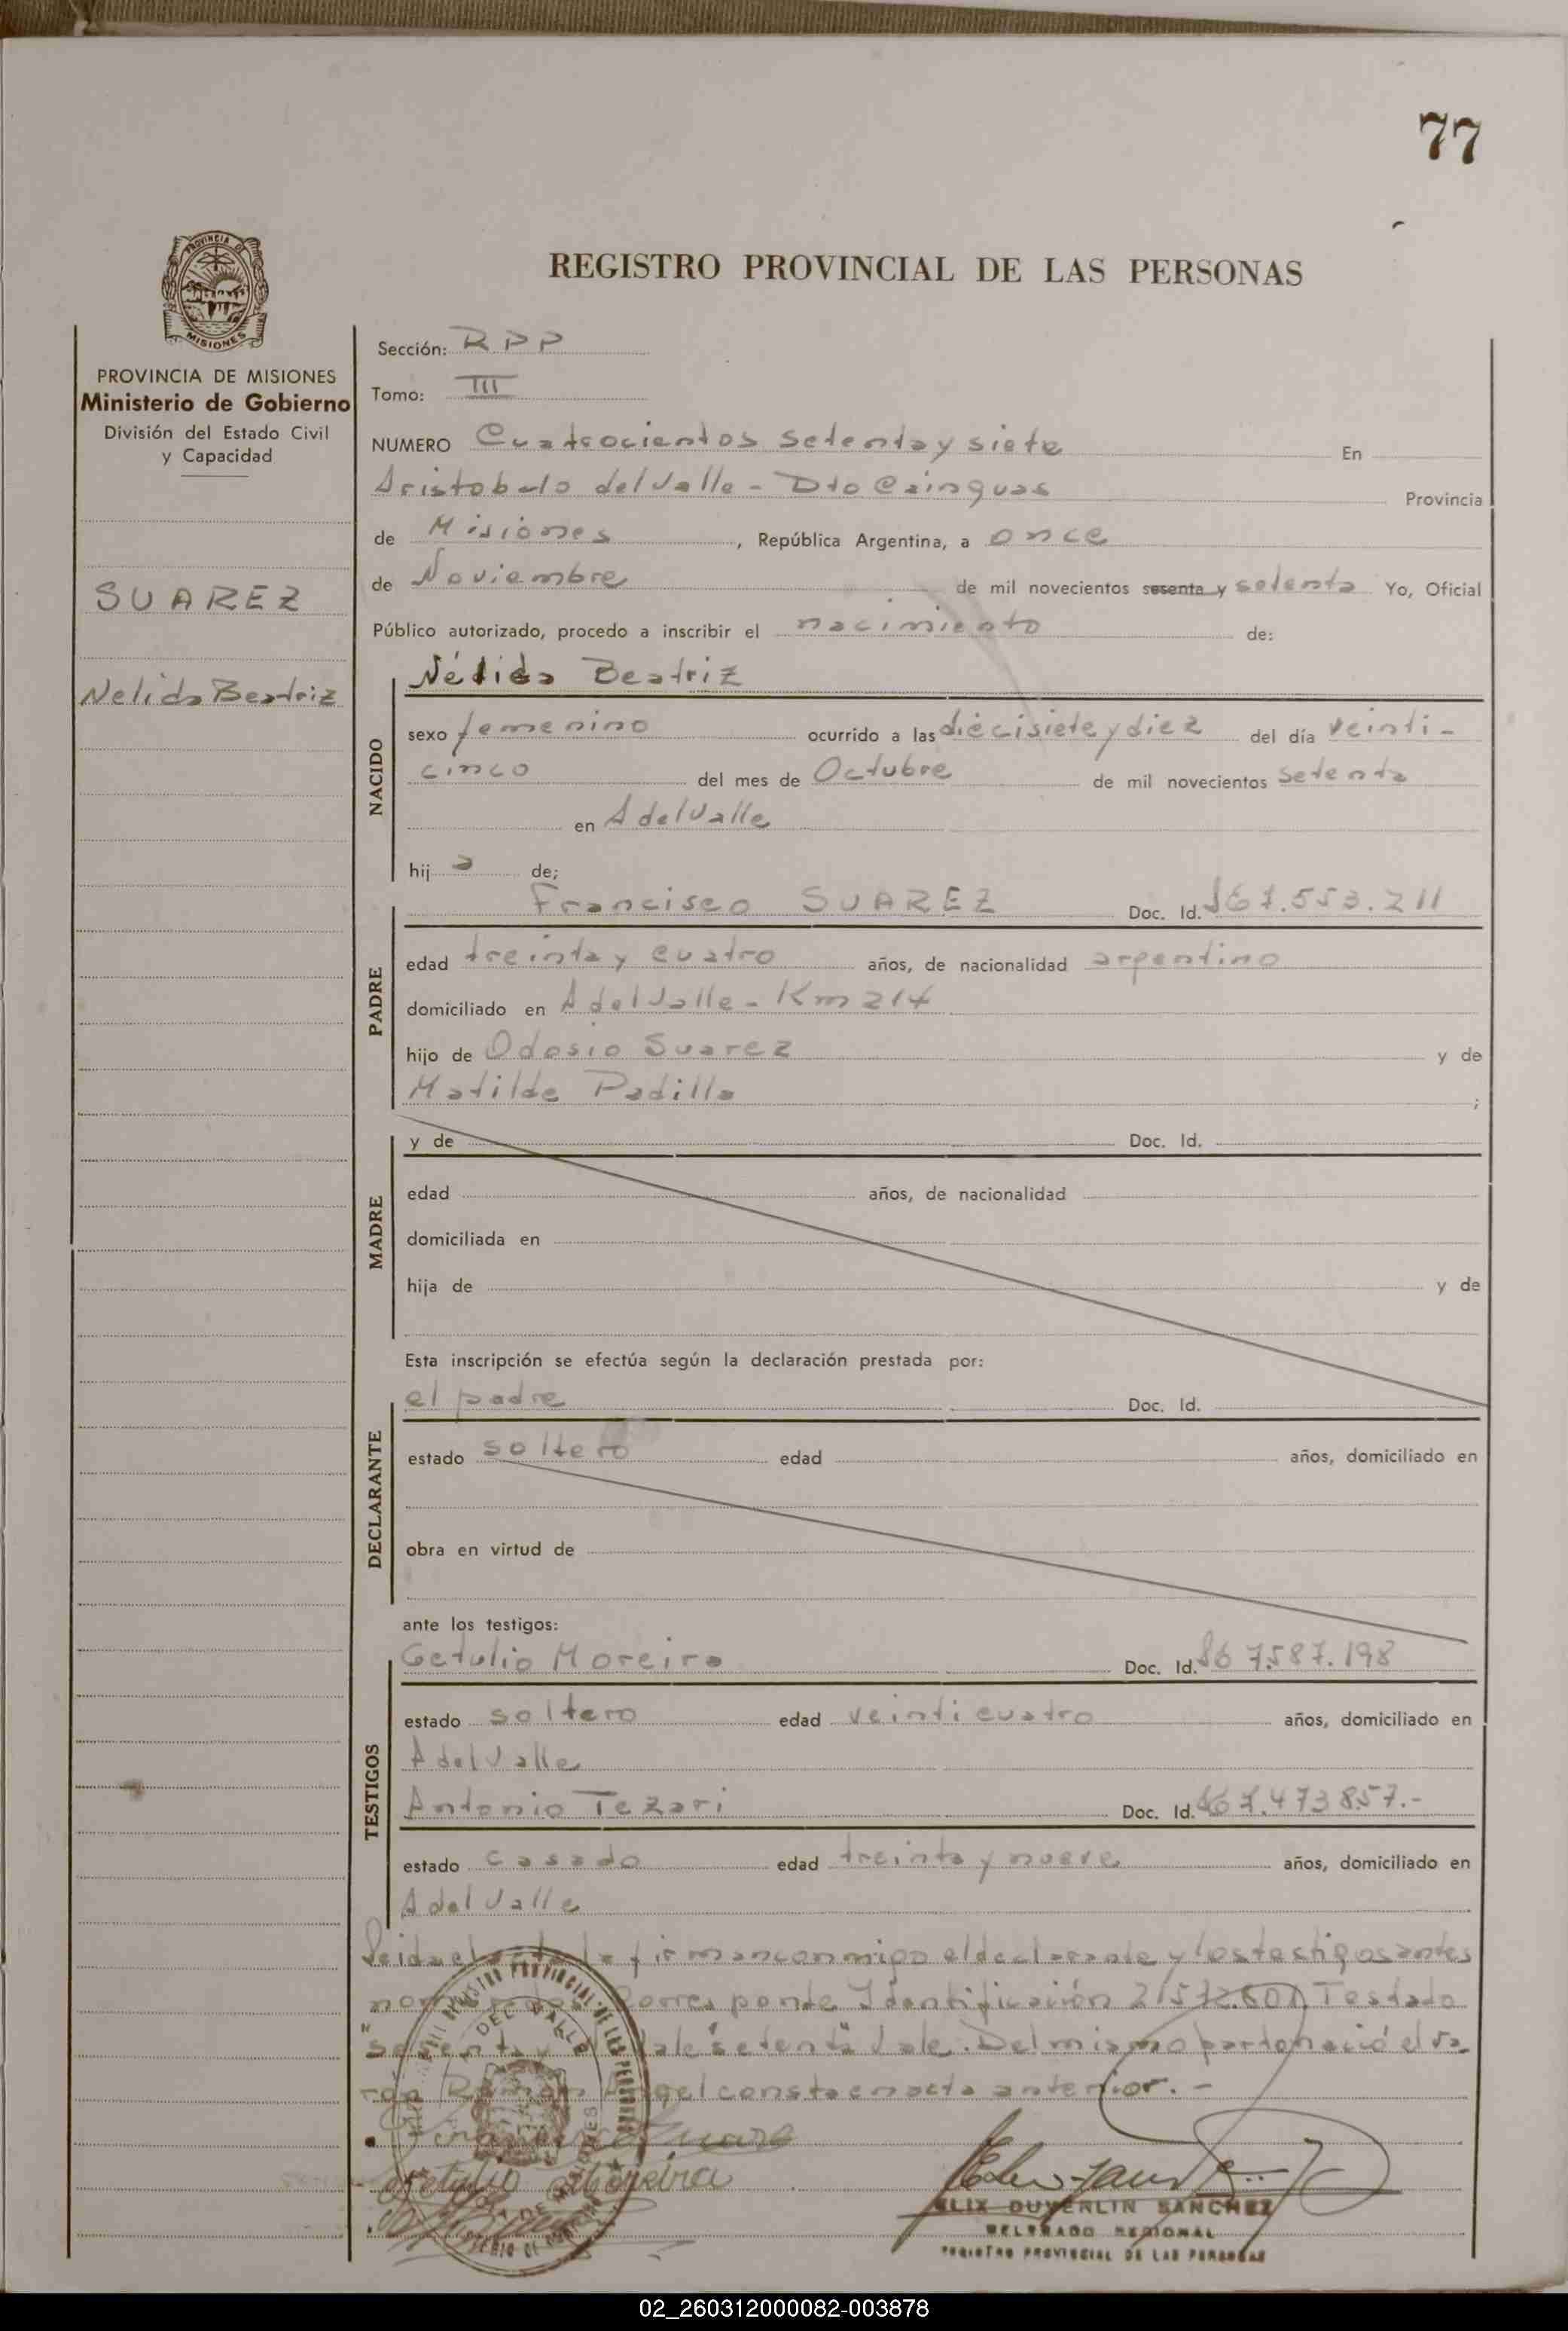 77
PROVINCIA DE
MISIONES
PROVINCIA DE MISIONES
Ministerio de Gobierno
División del Estado Civil
y Capacidad
SUAREZ
Nelida Beatriz
REGISTRO PROVINCIAL DE LAS PERSONAS
Sección: RPP
Tomo: III
NUMERO Cuatrocientos setenta y siete En
Aristobulo del Valle - Dto Cainguas Provincia
de Misiones, República Argentina, a once
de Noviembre de mil novecientos sesenta y setenta Yo, Oficial
Público autorizado, procedo a inscribir el nacimiento de:
NACIDO
Nélida Beatriz
sexo femenino ocurrido a las diecisiete y diez del día veinti-
cinco del mes de Octubre de mil novecientos setenta
en A del Valle
hij a de;
PADRE
Francisco SUAREZ Doc. Id. 7.553.211
edad treinta y cuatro años, de nacionalidad argentino
domiciliado en A del Valle - Km 214
hijo de Odosio Suarez y de
Matilde Padilla ;
MADRE
y de Doc. Id.
edad años, de nacionalidad
domiciliada en
hija de y de
Esta inscripción se efectúa según la declaración prestada por:
DECLARANTE
el padre Doc. Id.
estado soltero edad años, domiciliado en
obra en virtud de
ante los testigos:
TESTIGOS
Getulio Moreira Doc. Id. 7.587.198
estado soltero edad veinticuatro años, domiciliado en
A del Valle
Antonio Tezari Doc. Id. 7.473.857.-
estado casado edad treinta y nueve años, domiciliado en
A del Valle
Leida el acta la firman conmigo el declarante y los testigos antes
nombrados. Corresponde Identificación 21.572.601 Testado
"sesenta y" vale "setenta" Vale. Del mismo parto nació el va
ron Ramon Angel consta en acta anterior. -
Getulio Moreira
REGISTRO PROVINCIAL DE LAS PERSONAS
DEL VALLE
ELIX DUVERLIN SANCHEZ
DELEGADO REGIONAL
REGISTRO PROVINCIAL DE LAS PERSONAS
02_260312000082-003878